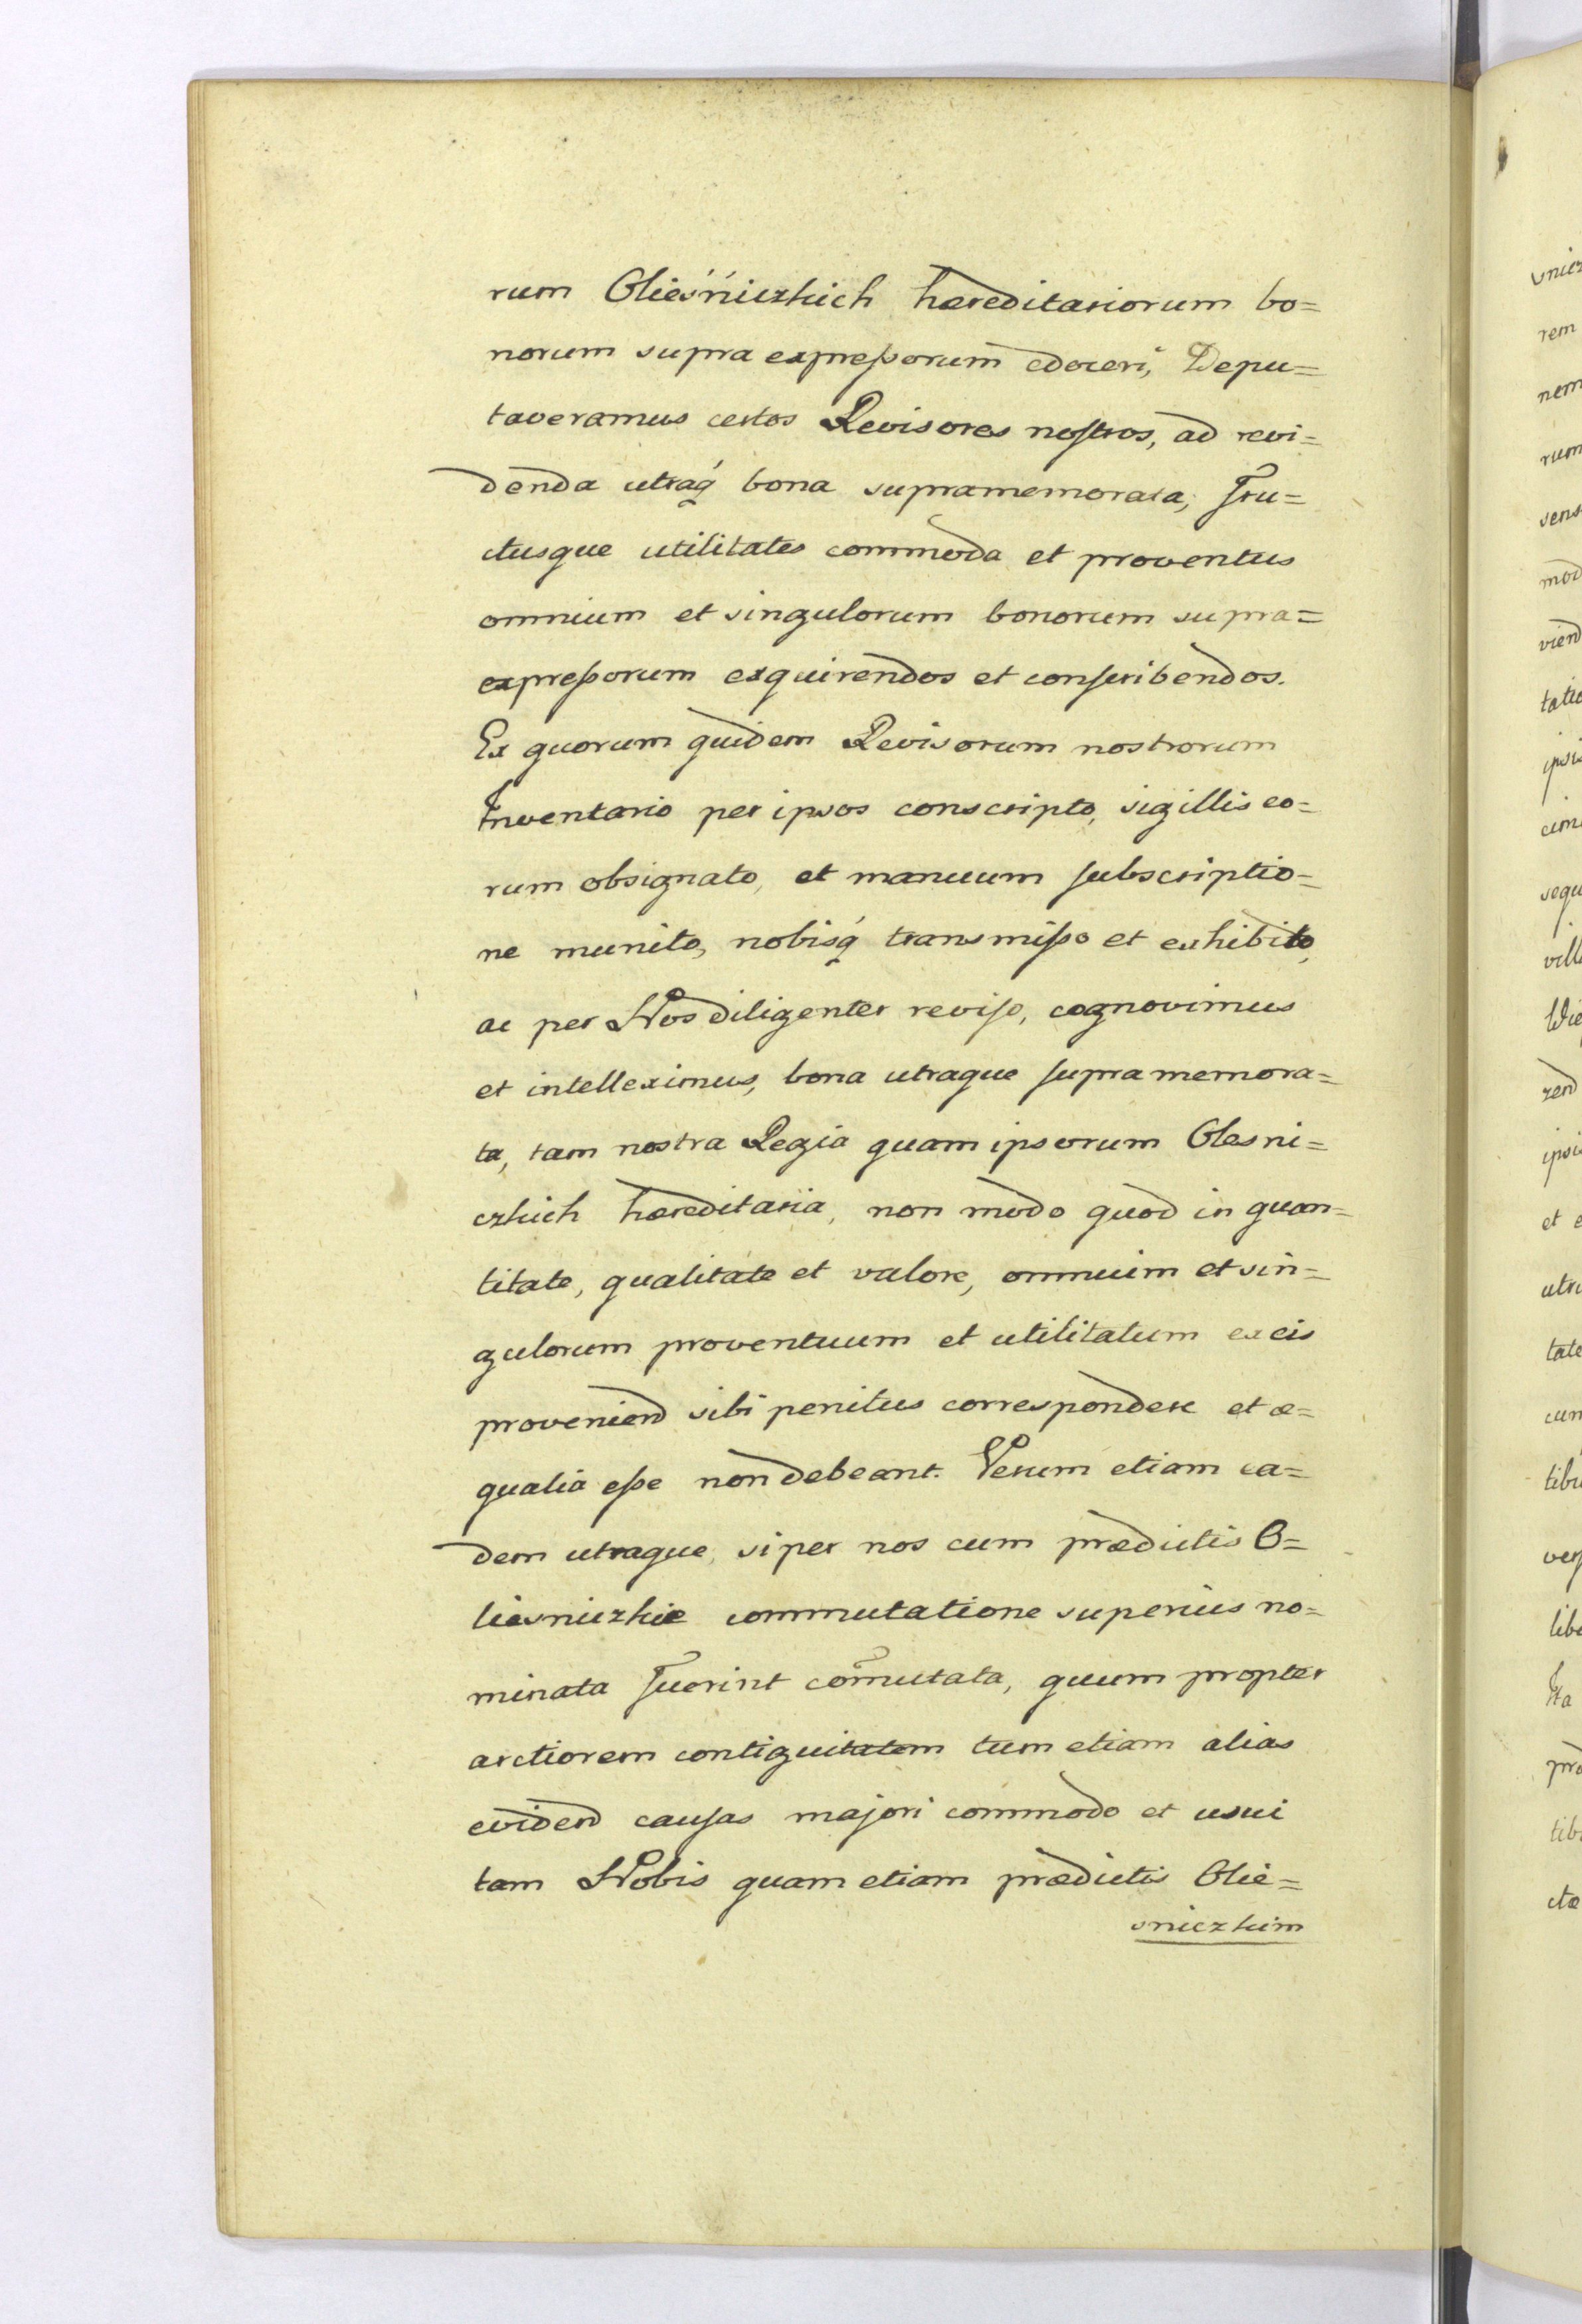 rum Olieśńiczkich hæreditariorum bo=
norum supra expreßorum edoceri, Depu=
taveramus certos Revisores noſtros, ad revi=
denda utraq́ bona supramemorata, Fru=
ctusque utilitates commoda et proventus
omnium et singulorum bonorum supra=
expreßorum exquirendos et conſcribendos.
Ex quorum quidem Revisorum nostrorum
Inventario per ipsos conscripto, sigillis eo=
rum obsignato, et manuum ſubscriptio=
ne munito, nobisq́ transmißo et exhibito,
ac per Nos diligenter reviſo, cognovimus
et intelleximus, bona utraque ſupra memora=
ta, tam nostra Regia quam ipsorum Olesni=
czkich hæreditaria, non modo quod in quan=
titate, qualitate et valore, omnium et sin=
gulorum proventuum et utilitatum ex eis
proveniend sibi penitus correspondere et æ=
qualia eße non debeant. Verum etiam ea=
dem utraque, si per nos cum prædictis O=
liesniczkie commutatione superius no=
minata Fuerint com̃utata, quum propter
arctiorem contiguitatem tum etiam alias
evidend cauſas majori commodo et usui
tam Nobis quam etiam prædictis Olie=
sniczkim
vnicz
rem
nem
rum
sens
mod
viend
tatio
ipsi
cim
sequ
vill
Wie
zend
ipsi
et e
utr
tate
cum
tibu
ver
libe
Ita
pro
tib
ctæ